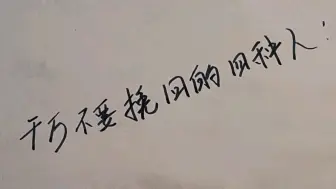 千万不要挽回的四种人：